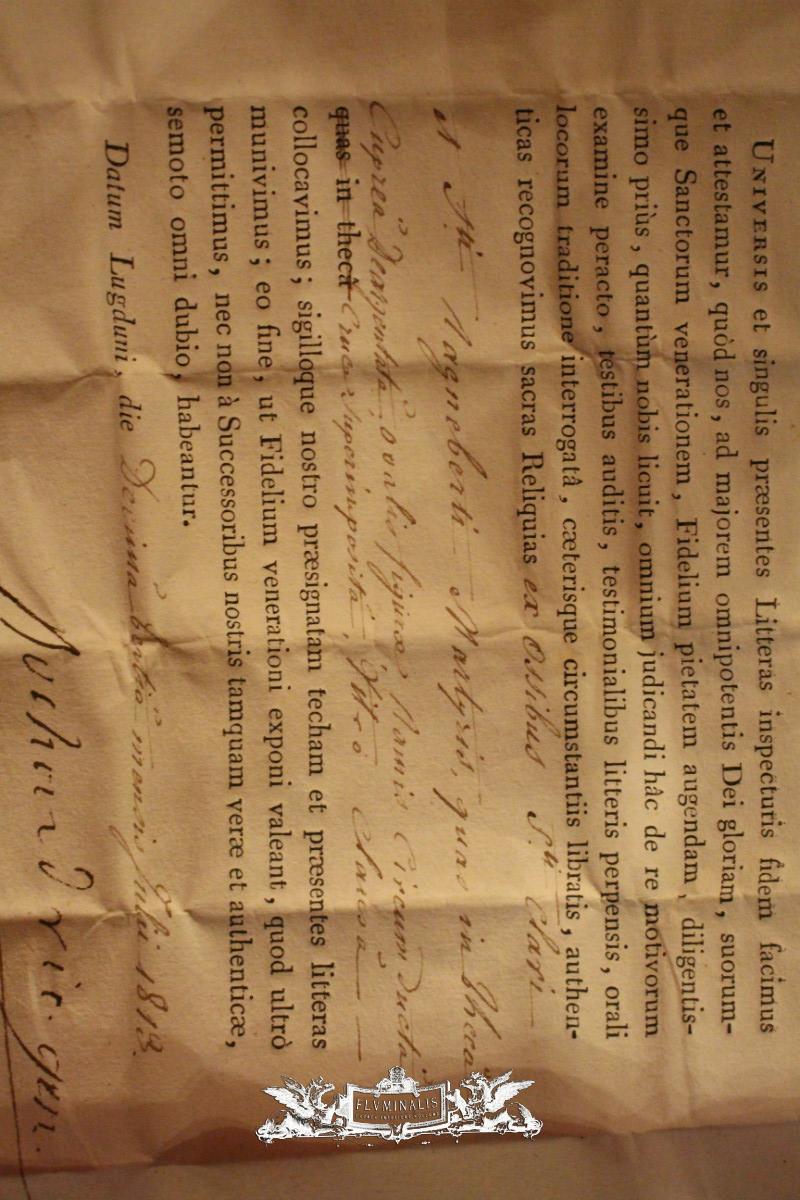 UNIVERSIS et singulis præsentes Litteras inspecturis fidem facimus
et attestamur, quòd nos, ad majorem omnipotentis Dei gloriam, suorum-
que Sanctorum venerationem, Fidelium pietatem augendam, diligentis-
simo priùs, quantùm nobis licuit, omnium judicandi hâc de re motivorum
examine peracto, testibus auditis, testimonialibus litteris perpensis, orali
locorum traditione interrogatâ, cæterisque circumstantiis libratis, authen-
ticas recognovimus sacras Reliquias ex ossibus Sti Clari
et Sti Ragneberti Martyris, quas in theca
Cuprea Deargentata, ovalis figuræ, Ramis Circumducta
quas in thecâ Cruce superimposita, Vitro Clausa
collocavimus; sigilloque nostro præsignatam techam et præsentes litteras
munivimus; eo fine, ut Fidelium venerationi exponi valeant, quod ultrò
permittimus, nec non à Successoribus nostris tamquam veræ et authenticæ,
semoto omni dubio, habeantur.
Datum Lugduni, die Decima tertia mensis Julii 1813.
vic. gen.
FLVMINALIS